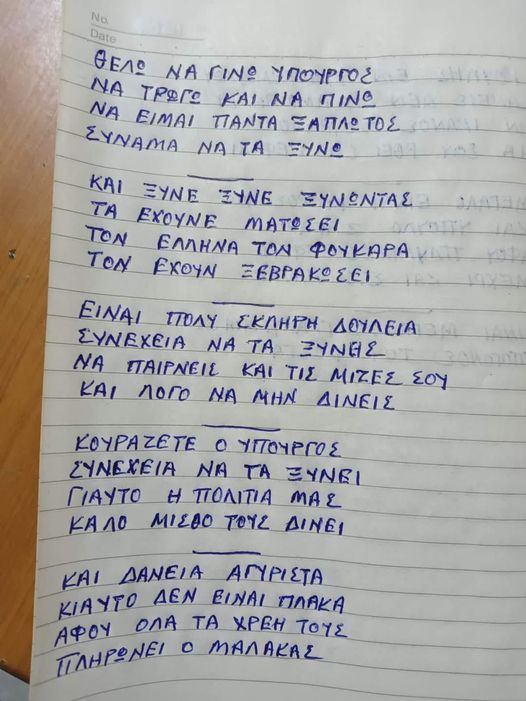 No.
Date
ΘΕΛΩ ΝΑ ΓΙΝΩ ΥΠΟΥΡΓΟΣ
ΝΑ ΤΡΩΓΩ ΚΑΙ ΝΑ ΠΙΝΩ
ΝΑ ΕΙΜΑΙ ΠΑΝΤΑ ΞΑΠΛΩΤΟΣ
ΣΥΝΑΜΑ ΝΑ ΤΑ ΞΥΝΩ
ΚΑΙ ΞΥΝΕ ΞΥΝΕ ΞΥΝΩΝΤΑΣ
ΤΑ ΕΧΟΥΝΕ ΜΑΤΩΣΕΙ
ΤΟΝ ΕΛΛΗΝΑ ΤΟΝ ΦΟΥΚΑΡΑ
ΤΟΝ ΕΧΟΥΝ ΞΕΒΡΑΚΩΣΕΙ
ΕΙΝΑΙ ΠΟΛΥ ΣΚΛΗΡΗ ΔΟΥΛΕΙΑ
ΣΥΝΕΧΕΙΑ ΝΑ ΤΑ ΞΥΝΕΙΣ
ΝΑ ΠΑΙΡΝΕΙΣ ΚΑΙ ΤΙΣ ΜΙΖΕΣ ΣΟΥ
ΚΑΙ ΛΟΓΟ ΝΑ ΜΗΝ ΔΙΝΕΙΣ
ΚΟΥΡΑΖΕΤΕ Ο ΥΠΟΥΡΓΟΣ
ΣΥΝΕΧΕΙΑ ΝΑ ΤΑ ΞΥΝΕΙ
ΓΙΑΥΤΟ Η ΠΟΛΙΤΙΑ ΜΑΣ
ΚΑΛΟ ΜΙΣΘΟ ΤΟΥΣ ΔΙΝΕΙ
ΚΑΙ ΔΑΝΕΙΑ ΑΓΥΡΙΣΤΑ
ΚΙΑΥΤΟ ΔΕΝ ΕΙΝΑΙ ΠΛΑΚΑ
ΑΦΟΥ ΟΛΑ ΤΑ ΧΡΕΗ ΤΟΥΣ
ΠΛΗΡΩΝΕΙ Ο ΜΑΛΑΚΑΣ